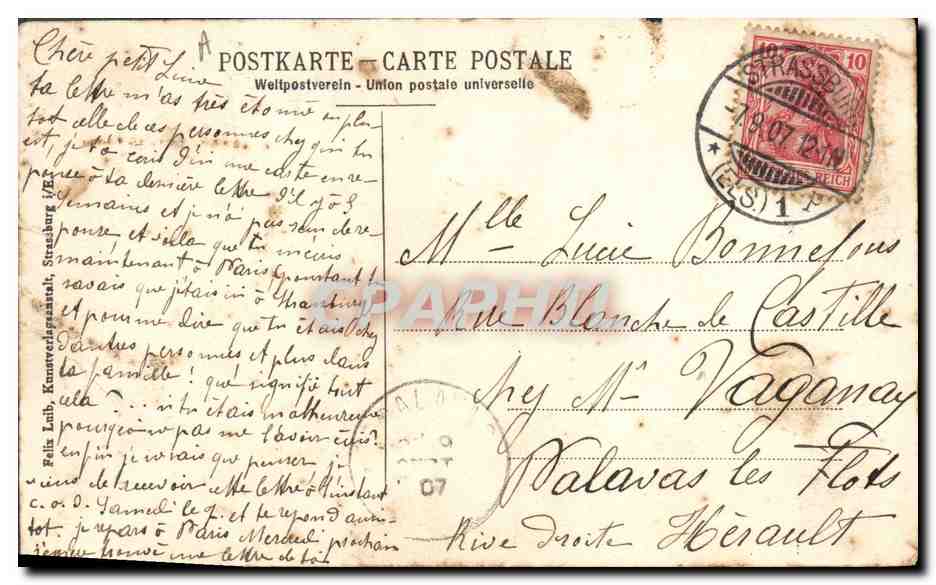 POSTKARTE – CARTE POSTALE
Weltpostverein - Union postale universelle
A
Chère petit Lucie
ta lettre m'as très étonné en plu-
tot celle de ces personnes chez qui tu
est, je t'a une carte en re-
ponce à ta dernière lettre il y à 5
semaines et je n'ai pas reçu de re-
ponse et cela que tu m'écris
maintenant à Paris pourtant tu
savais que j'etais ici à Strasburg
et pour me dire que tu étais chez
d'autres personnes et plus dans
ta famille! que signifie tout
cela ?... si tu étais malheureuse
pourquoi ne pas me l'avoir écris?
enfin je ne sais que penser, je
viens de recevoir cette lettre à l'instant
c.a.d. Samedi le et te repond aussi-
tot. je repars à Paris Mercredi prochain
une lettre de toi
Felix Luib, Kunstverlagsanstalt, Strassburg i/E.
10 10
REICH
STRASSBURG
8.07. 12-1N
(ELS.) 1
Mlle Lucie Bonnefous
Rue Blanche de Castille
chez Mr Vaganay
Palavas les Flots
Rive droite Hérault
PALAVAS
9
07
CPAPHIL